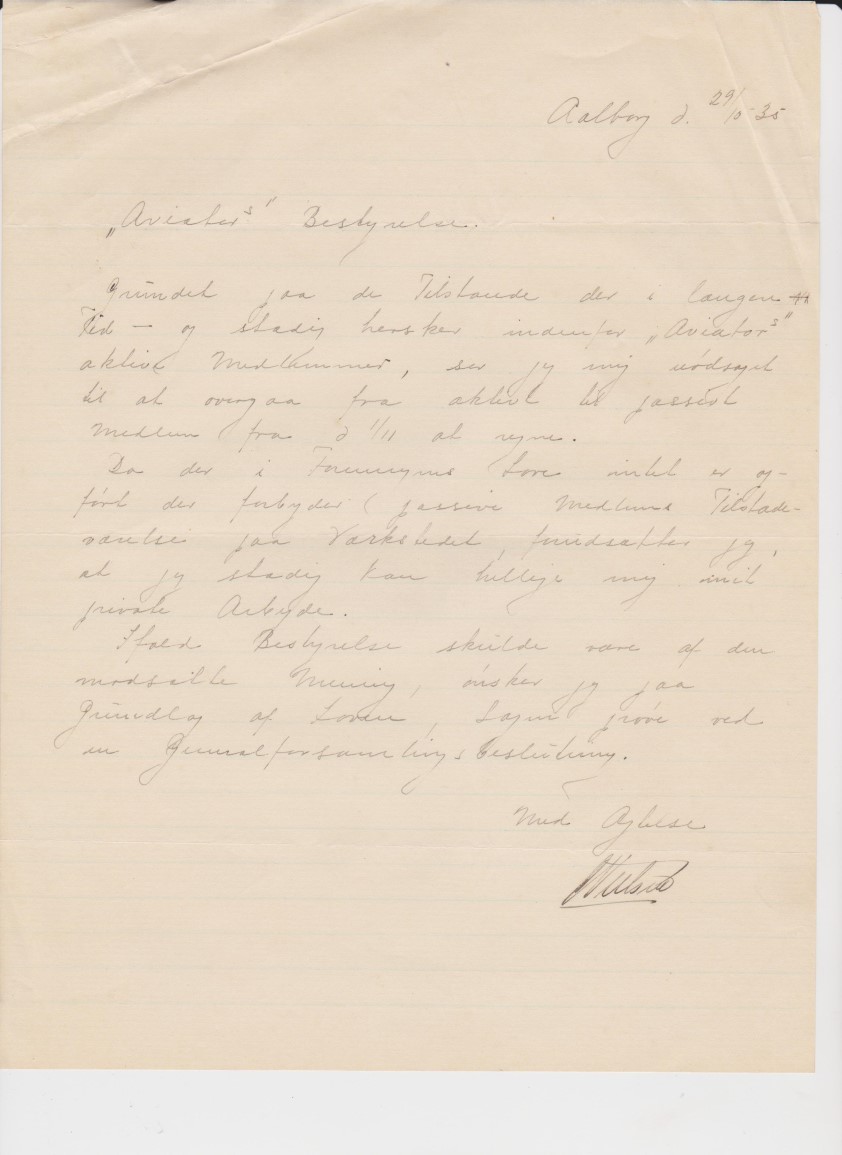 Aalborg d. 29/10-35
„Aviators" Bestyrelse.
Grundet paa de Tilstande der i længere
Tid — og stadig hersker indenfor „Aviators"
aktive Medlemmer, ser jeg mig nødsaget
til at overgaa fra aktivt til passivt
Medlem fra d 1/11 at regne.
Da der i Foreningens Love intet er op-
ført der forbyder ( passive Medlems Tilstede-
værelse paa Værkstedet, forudsætter jeg,
at jeg stadig kan hellige mig mit
private Arbejde.
Ifald Bestyrelse skulde være af den
modsatte Mening, ønsker jeg paa
Grundlag af Loven, Sagen prøve ved
en Generalforsamlingsbeslutning.
Med Agtelse